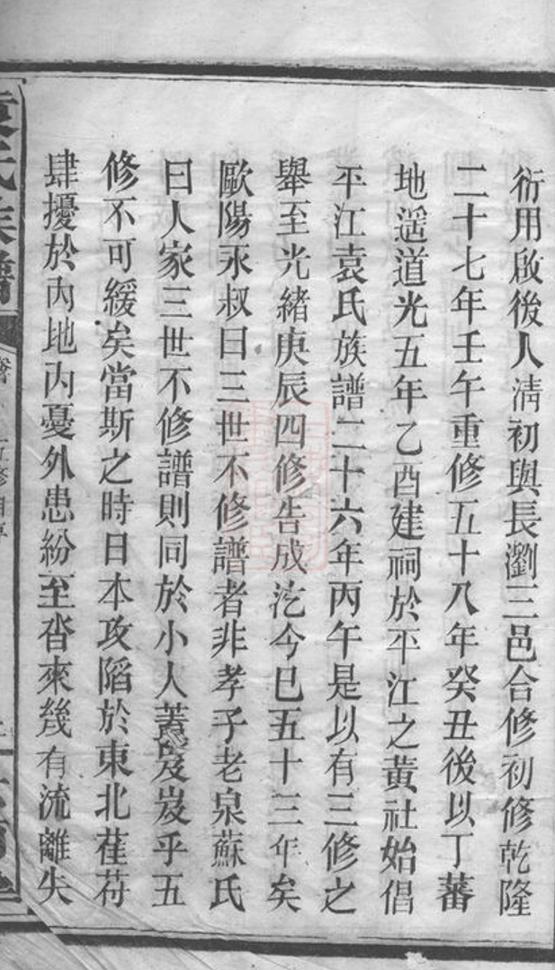 衍用啟後人清初與長瀏三邑合修初修乾隆
二十七年壬午重修五十八年癸丑後以丁蕃
地遥道光五年乙酉建祠於平江之黃社始倡
平江袁氏族譜二十六年丙午是以有三修之
舉至光緒庚辰四修告成迄今已五十三年矣
歐陽永叔曰三世不修譜者非孝子老泉蘇氏
曰人家三世不修譜則同於小人蓋岌岌乎五
修不可緩矣當斯之時日本攻陷於東北萑苻
肆擾於內地內憂外患紛至沓來幾有流離失
袁氏族譜